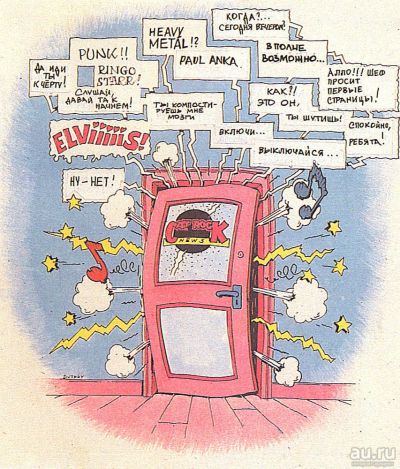 КОГДА?...
СЕГОДНЯ ВЕЧЕРОМ?
HEAVY
METAL!?
PUNK!!
RINGO
STARR!
PAUL ANKA
ВПОЛНЕ
ВОЗМОЖНО...
ДА ИДИ
ТЫ
К ЧЕРТУ!
АЛЛО!!! ШЕФ
ПРОСИТ
ПЕРВЫЕ
СТРАНИЦЫ!
СЛУШАЙ,
ДАВАЙ ТАК
НАЧНЕМ!
КАК?!
ЭТО ОН,
ТЫ КОМПОСТИ-
РУЕШЬ МНЕ
МОЗГИ
ТЫ ШУТИШЬ!
СПОКОЙНО,
РЕБЯТА!
ELViiiiiS!
ВКЛЮЧИ...
ВЫКЛЮЧАЙСЯ...
НУ-НЕТ!
ROCK
NEWS
au.ru